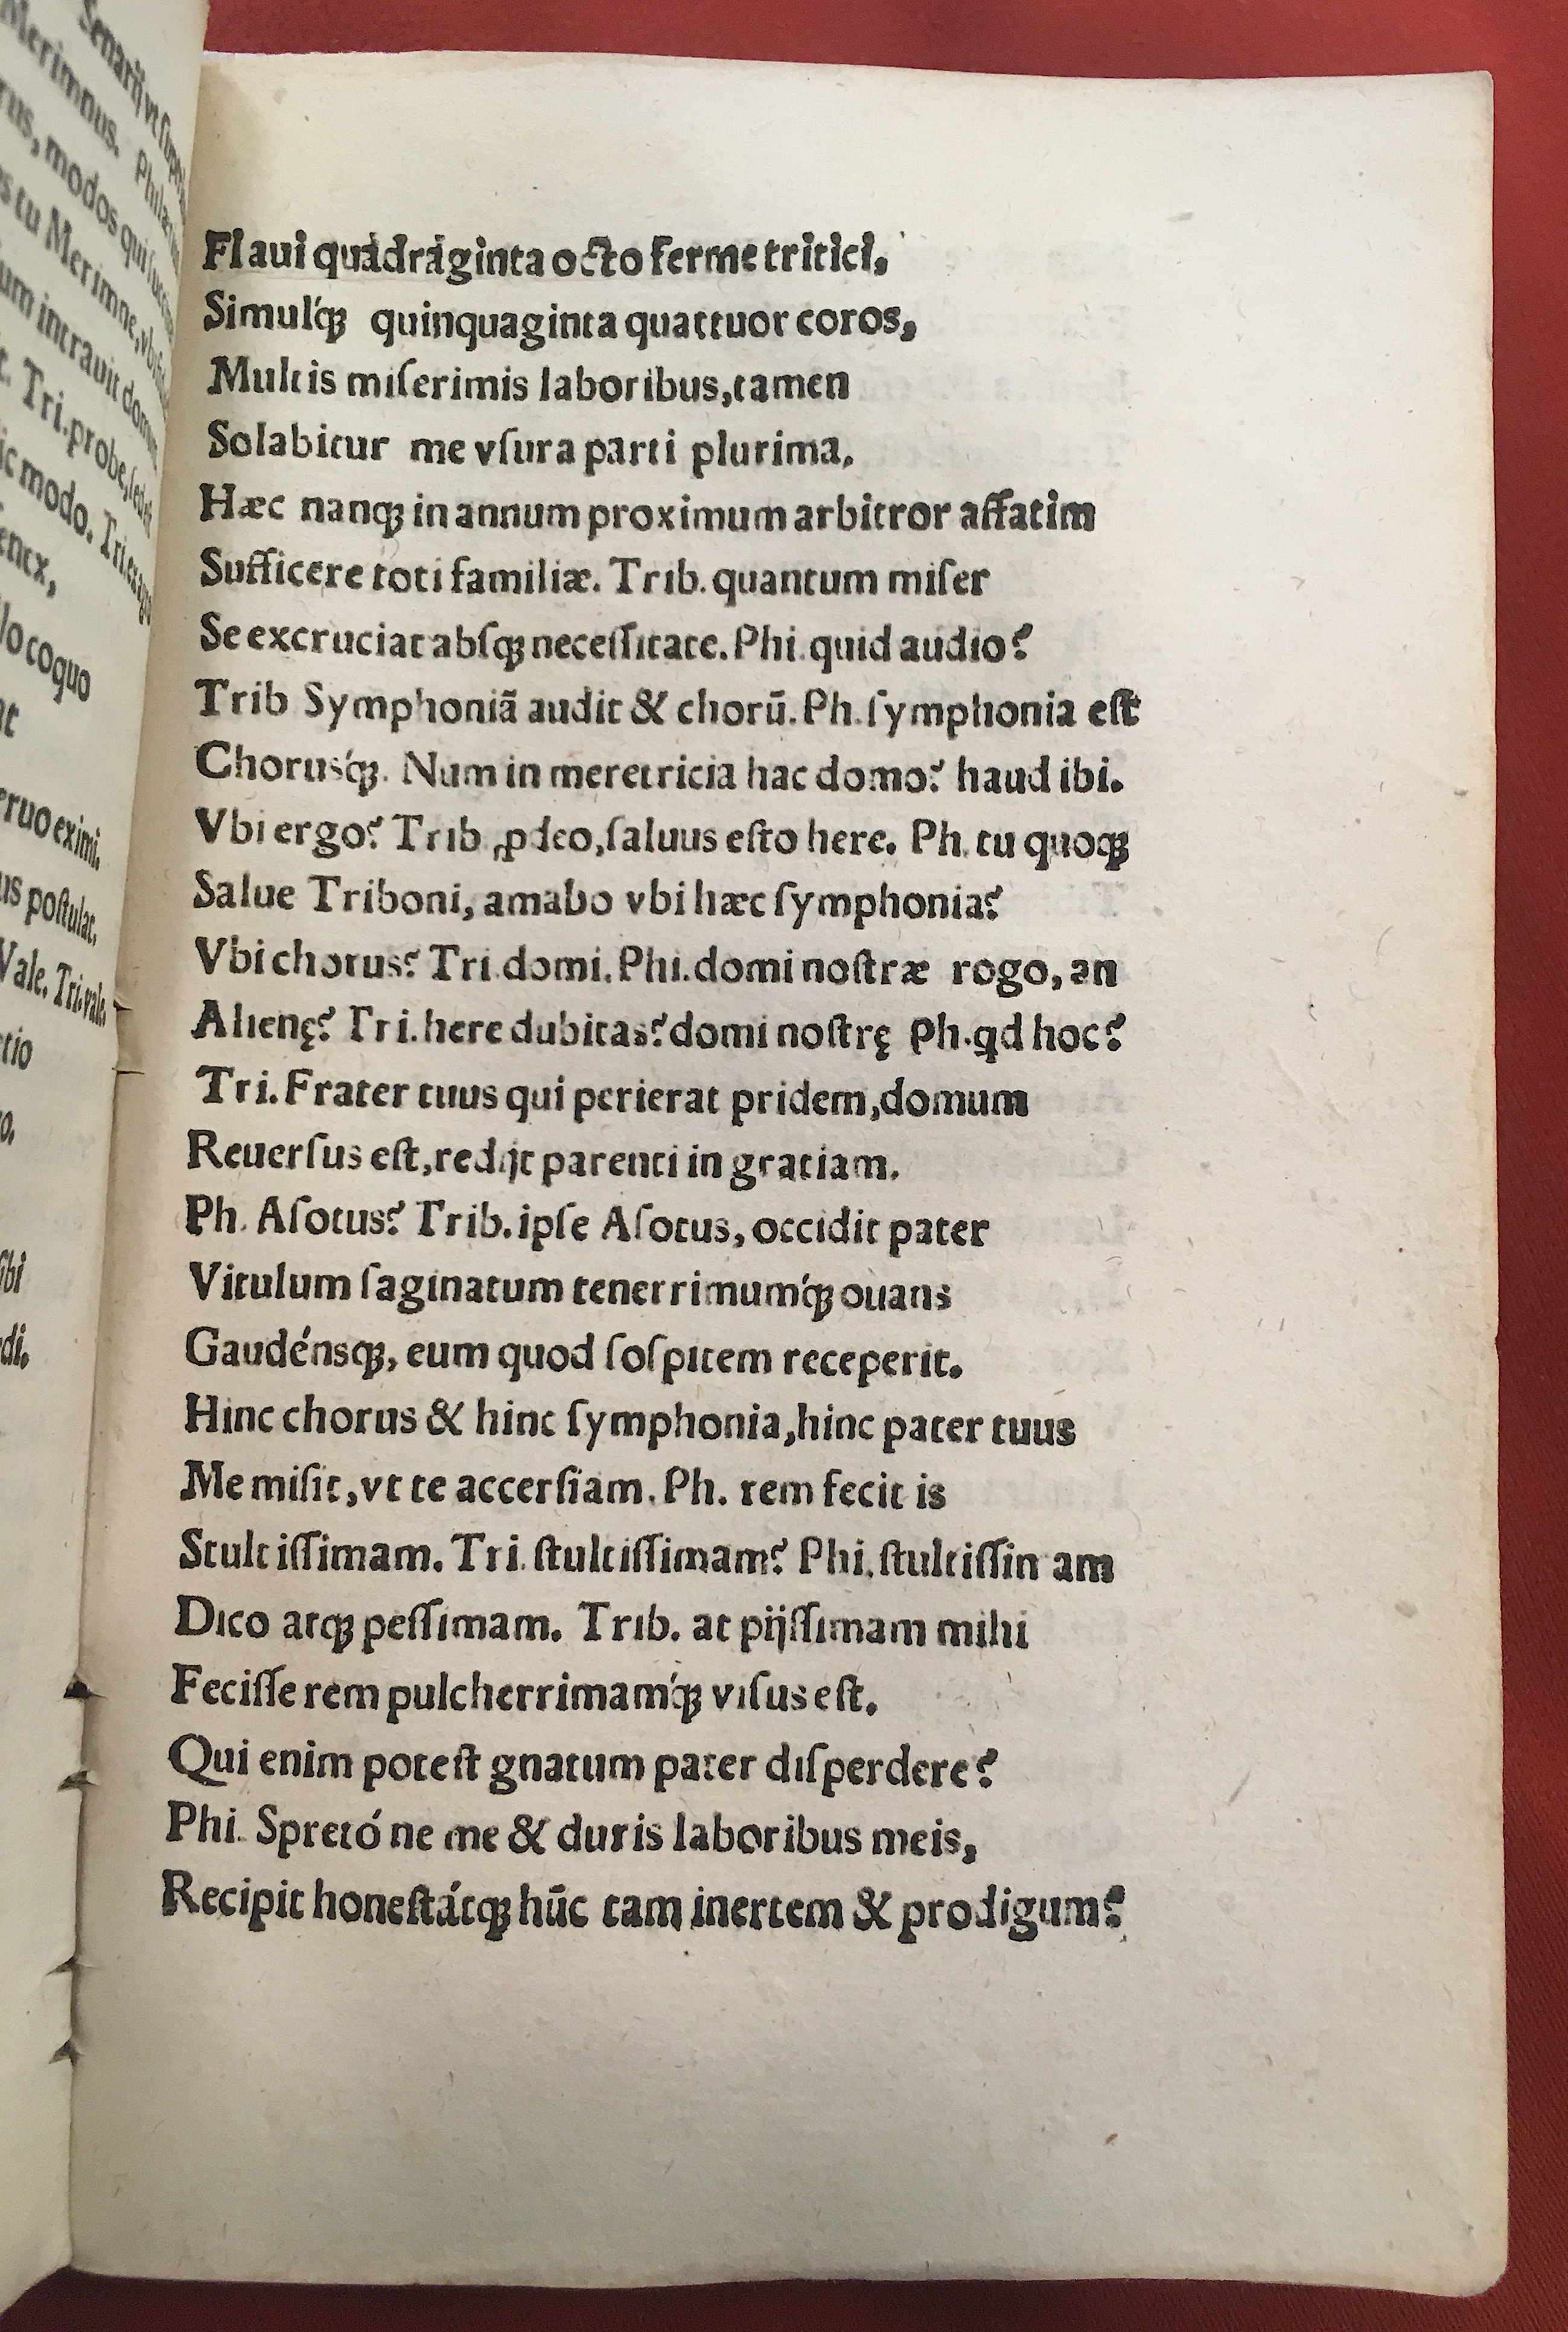 Senarij vt supra
Merimnus.
rus, modos qui
s tu Merimne, vbi
um intrauit domum
t. Tri. probe, sed
ic modo. Tri.
enex,
lo coquo
eruo eximi.
us poſtulat.
Vale. Tri. vale.
tio
ſibi
di.
Flaui quádráginta octo ferme tritici,
Simulq́ꝫ quinquaginta quattuor coros,
Multis miſerimis laboribus, tamen
Solabitur me vſura parti plurima.
Hæc nanqꝫ in annum proximum arbitror affatim
Sufficere toti familiæ. Trib. quantum miſer
Se excruciat abſqꝫ neceſſitate. Phi. quid audio?
Trib Symphoniā audit & chorū. Ph. ſymphonia eſt
Chorusq́ꝫ. Num in meretricia hac domo? haud ibi.
Vbi ergo? Trib ꝓdeo, ſaluus eſto here. Ph. tu quoqꝫ
Salue Triboni, amabo vbi hæc ſymphonia?
Vbi chorus? Tri. domi. Phi. domi noſtræ rogo, an
Alienę? Tri. here dubitas? domi noſtrę Ph. qd hoc?
Tri. Frater tuus qui perierat pridem, domum
Reuerſus eſt, redijt parenti in gratiam.
Ph. Aſotus? Trib. ipſe Aſotus, occidit pater
Vitulum ſaginatum tenerrimumq́ꝫ ouans
Gaudénsqꝫ, eum quod ſoſpitem receperit.
Hinc chorus & hinc ſymphonia, hinc pater tuus
Me miſit, vt te accerſiam. Ph. rem fecit is
Stultiſſimam. Tri. ſtultiſſimam? Phi. ſtultiſſin am
Dico atqꝫ peſſimam. Trib. at pijſſimam mihi
Feciſſe rem pulcherrimamq́ꝫ viſus eſt.
Qui enim poteſt gnatum pater diſperdere?
Phi. Spretó ne me & duris laboribus meis,
Recipit honeſtátqꝫ hūc tam inertem & prodigum?